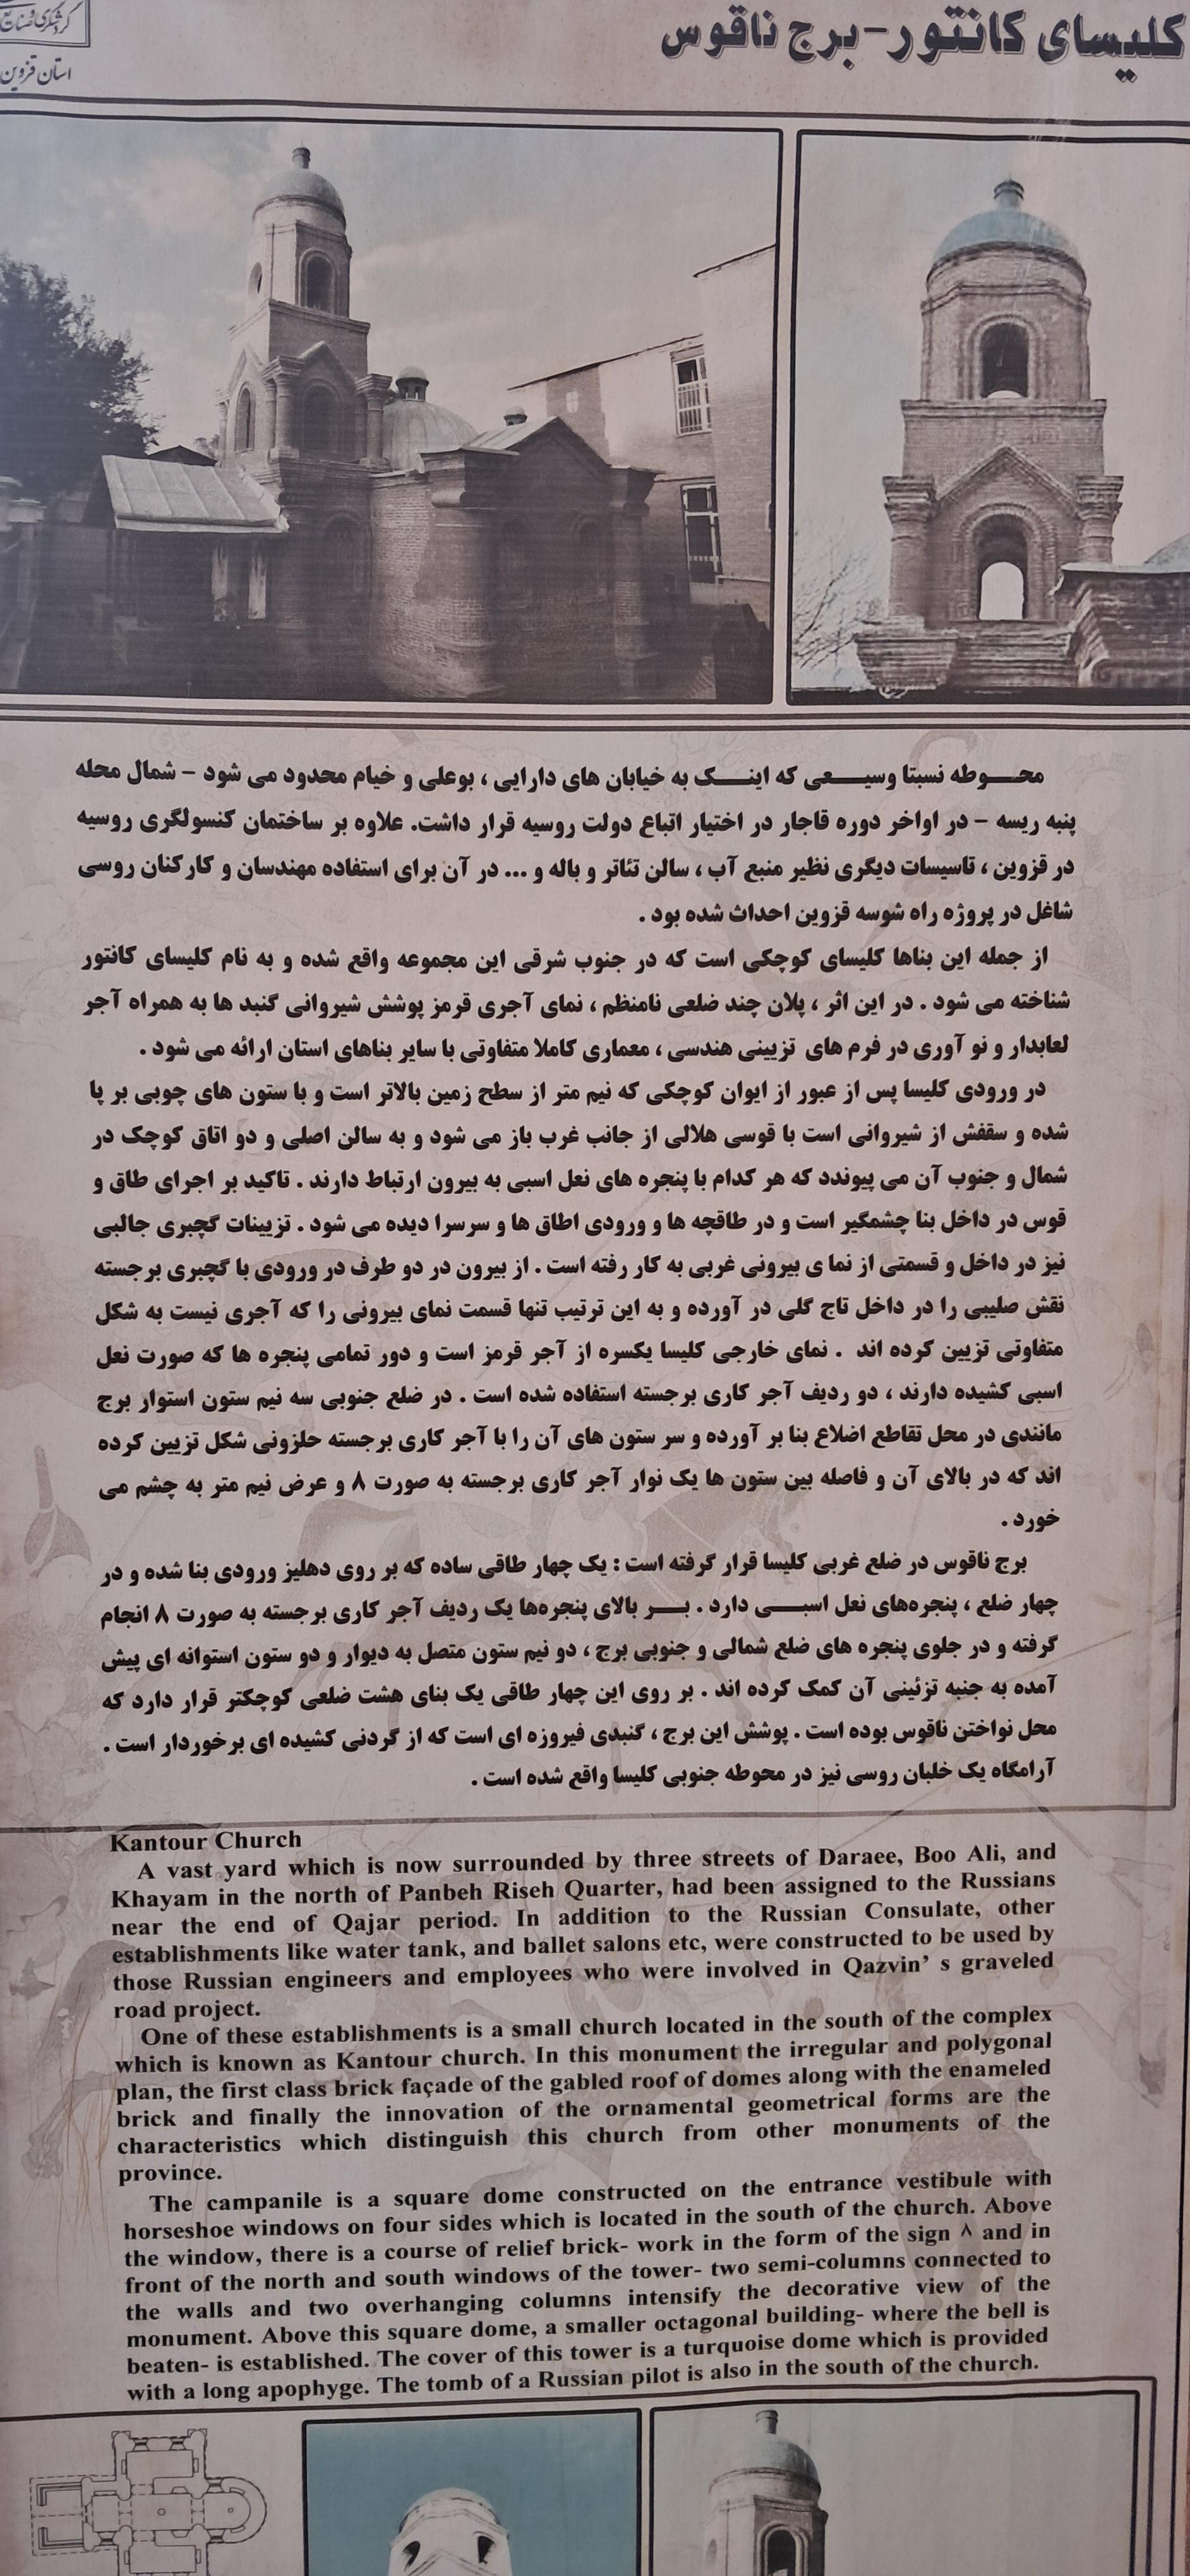 کلیسای کانتور-برج ناقوس
گردشگری و صنایع
استان قزوین
محـــوطه نسبتا وسیـــعی که اینـــک به خیابان های دارایی ، بوعلی و خیام محدود می شود – شمال محله
پنبه ریسه – در اواخر دوره قاجار در اختیار اتباع دولت روسیه قرار داشت. علاوه بر ساختمان کنسولگری روسیه
در قزوین ، تاسیسات دیگری نظیر منبع آب ، سالن تئاتر و باله و ... در آن برای استفاده مهندسان و کارکنان روسی
شاغل در پروژه راه شوسه قزوین احداث شده بود .
از جمله این بناها کلیسای کوچکی است که در جنوب شرقی این مجموعه واقع شده و به نام کلیسای کانتور
شناخته می شود . در این اثر ، پلان چند ضلعی نامنظم ، نمای آجری قرمز پوشش شیروانی گنبد ها به همراه آجر
لعابدار و نو آوری در فرم های تزیینی هندسی ، معماری کاملا متفاوتی با سایر بناهای استان ارائه می شود .
در ورودی کلیسا پس از عبور از ایوان کوچکی که نیم متر از سطح زمین بالاتر است و با ستون های چوبی بر پا
شده و سقفش از شیروانی است با قوسی هلالی از جانب غرب باز می شود و به سالن اصلی و دو اتاق کوچک در
شمال و جنوب آن می پیوندد که هر کدام با پنجره های نعل اسبی به بیرون ارتباط دارند . تاکید بر اجرای طاق و
قوس در داخل بنا چشمگیر است و در طاقچه ها و ورودی اطاق ها و سرسرا دیده می شود . تزیینات گچبری جالبی
نیز در داخل و قسمتی از نما ی بیرونی غربی به کار رفته است . از بیرون در دو طرف در ورودی با گچبری برجسته
نقش صلیبی را در داخل تاج گلی در آورده و به این ترتیب تنها قسمت نمای بیرونی را که آجری نیست به شکل
متفاوتی تزیین کرده اند . نمای خارجی کلیسا یکسره از آجر قرمز است و دور تمامی پنجره ها که صورت نعل
اسبی کشیده دارند ، دو ردیف آجر کاری برجسته استفاده شده است . در ضلع جنوبی سه نیم ستون استوار برج
مانندی در محل تقاطع اضلاع بنا بر آورده و سر ستون های آن را با آجر کاری برجسته حلزونی شکل تزیین کرده
اند که در بالای آن و فاصله بین ستون ها یک نوار آجر کاری برجسته به صورت ۸ و عرض نیم متر به چشم می
خورد .
برج ناقوس در ضلع غربی کلیسا قرار گرفته است : یک چهار طاقی ساده که بر روی دهلیز ورودی بنا شده و در
چهار ضلع ، پنجره‌های نعل اسبـــی دارد . بـــر بالای پنجره‌ها یک ردیف آجر کاری برجسته به صورت ۸ انجام
گرفته و در جلوی پنجره های ضلع شمالی و جنوبی برج ، دو نیم ستون متصل به دیوار و دو ستون استوانه ای پیش
آمده به جنبه تزئینی آن کمک کرده اند . بر روی این چهار طاقی یک بنای هشت ضلعی کوچکتر قرار دارد که
محل نواختن ناقوس بوده است . پوشش این برج ، گنبدی فیروزه ای است که از گردنی کشیده ای برخوردار است .
آرامگاه یک خلبان روسی نیز در محوطه جنوبی کلیسا واقع شده است .
Kantour Church
A vast yard which is now surrounded by three streets of Daraee, Boo Ali, and
Khayam in the north of Panbeh Riseh Quarter, had been assigned to the Russians
near the end of Qajar period. In addition to the Russian Consulate, other
establishments like water tank, and ballet salons etc, were constructed to be used by
those Russian engineers and employees who were involved in Qazvin' s graveled
road project.
One of these establishments is a small church located in the south of the complex
which is known as Kantour church. In this monument the irregular and polygonal
plan, the first class brick façade of the gabled roof of domes along with the enameled
brick and finally the innovation of the ornamental geometrical forms are the
characteristics which distinguish this church from other monuments of the
province.
The campanile is a square dome constructed on the entrance vestibule with
horseshoe windows on four sides which is located in the south of the church. Above
the window, there is a course of relief brick- work in the form of the sign ^ and in
front of the north and south windows of the tower- two semi-columns connected to
the walls and two overhanging columns intensify the decorative view of the
monument. Above this square dome, a smaller octagonal building- where the bell is
beaten- is established. The cover of this tower is a turquoise dome which is provided
with a long apophyge. The tomb of a Russian pilot is also in the south of the church.